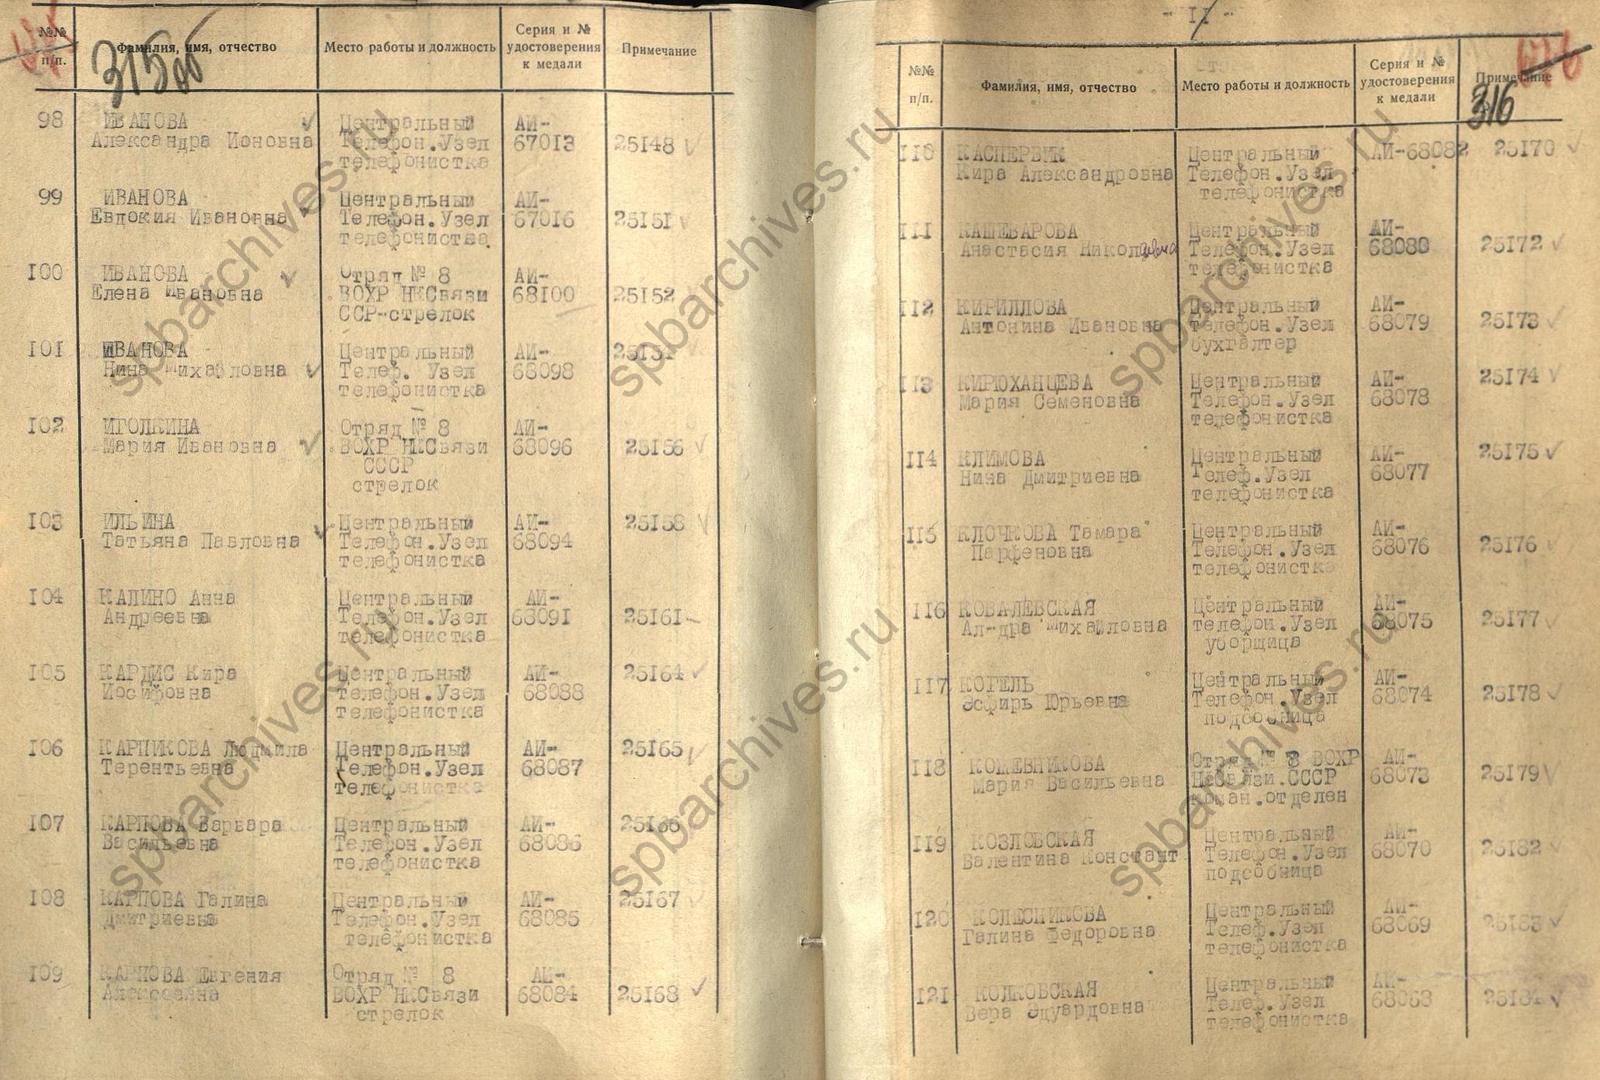 №№ п/п.
Фамилия, имя, отчество
Место работы и должность
Серия и № удостоверения к медали
Примечание
315об
98 ИВАНОВА Центральный АИ-
Александра Ионовна Телефон.Узел 67013 25148
телефонистка
99 ИВАНОВА Центральный АИ-
Евдокия Ивановна Телефон.Узел 67016 25151
телефонистка
100 ИВАНОВА Отряд № 8 АИ-
Елена Ивановна ВОХР НКСвязи 68100 25152
СССР-стрелок
101 ИВАНОВА Центральный АИ-
Нина Михайловна Телеф. Узел 68098
телефонистка
102 ИГОЛКИНА Отряд № 8 АИ-
Мария Ивановна ВОХР НКСвязи 68096 25156
СССР
стрелок
103 ИЛЬИНА Центральный АИ- 25158
Татьяна Павловна Телефон.Узел 68094
телефонистка
104 КАЛИНО Анна Центральный АИ-
Андреевна Телефон.Узел 68091 25161
телефонистка
105 КАРДИС Кира Центральный АИ- 25164
Иосифовна Телефон.Узел 68088
телефонистка
106 КАРПИКОВА Людмила Центральный АИ- 25165
Терентьевна Телефон.Узел 68087
телефонистка
107 КАРПОВА Варвара Центральный АИ- 25166
Васильевна Телефон.Узел 68086
телефонистка
108 КАРПОВА Галина Центральный АИ- 25167
Дмитриевна Телефон.Узел 68085
телефонистка
109 КАРПОВА Евгения Отряд № 8 АИ-
Алексеевна ВОХР НКСвязи 68084 25168
стрелок
- 11 -
№№ п/п.
Фамилия, имя, отчество
Место работы и должность
Серия и № удостоверения к медали
Примечание
316
110 КАСПЕРВИК Центральный АИ-68082 25170
Кира Александровна Телефон.Узел
телефонистка
111 КАШЕВАРОВА Центральный АИ-
Анастасия Николаевна Телефон.Узел 68080 25172
телефонистка
112 КИРИЛЛОВА Центральный АИ-
Антонина Ивановна Телефон.Узел 68079 25173
бухгалтер
113 КИРЮХАНЦЕВА Центральный АИ- 25174
Мария Семеновна Телефон.Узел 68078
телефонистка
114 КЛИМОВА Центральный АИ- 25175
Нина Дмитриевна Телеф.Узел 68077
телефонистка
115 КЛОЧКОВА Тамара Центральный АИ-
Парфеновна Телефон.Узел 68076 25176
телефонистка
116 КОВАЛЕВСКАЯ Центральный АИ-
Ал-дра Михайловна телефон.Узел 68075 25177
уборщица
117 КОГЕЛЬ Центральный АИ-
Эсфирь Юрьевна Телефон.Узел 68074 25178
подсобница
118 КОЖЕВНИКОВА Отряд № 8 ВОХР АИ-
Мария Васильевна НКСвязи.СССР 68073 25179
коман.отделен
119 КОЗЛОВСКАЯ Центральный АИ-
Валентина Констант Телефон.Узел 68070 25182
подсобница
120 КОЛЕСНИКОВА Центральный АИ-
Галина Федоровна Телеф.Узел 68069 25183
телефонистка
121 КОЛКОВСКАЯ Центральный АИ-
Вера Эдуардовна Телеф.Узел
телефонистка
spbarchives.ru
spbarchives.ru
spbarchives.ru
spbarchives.ru
spbarchives.ru
spbarchives.ru